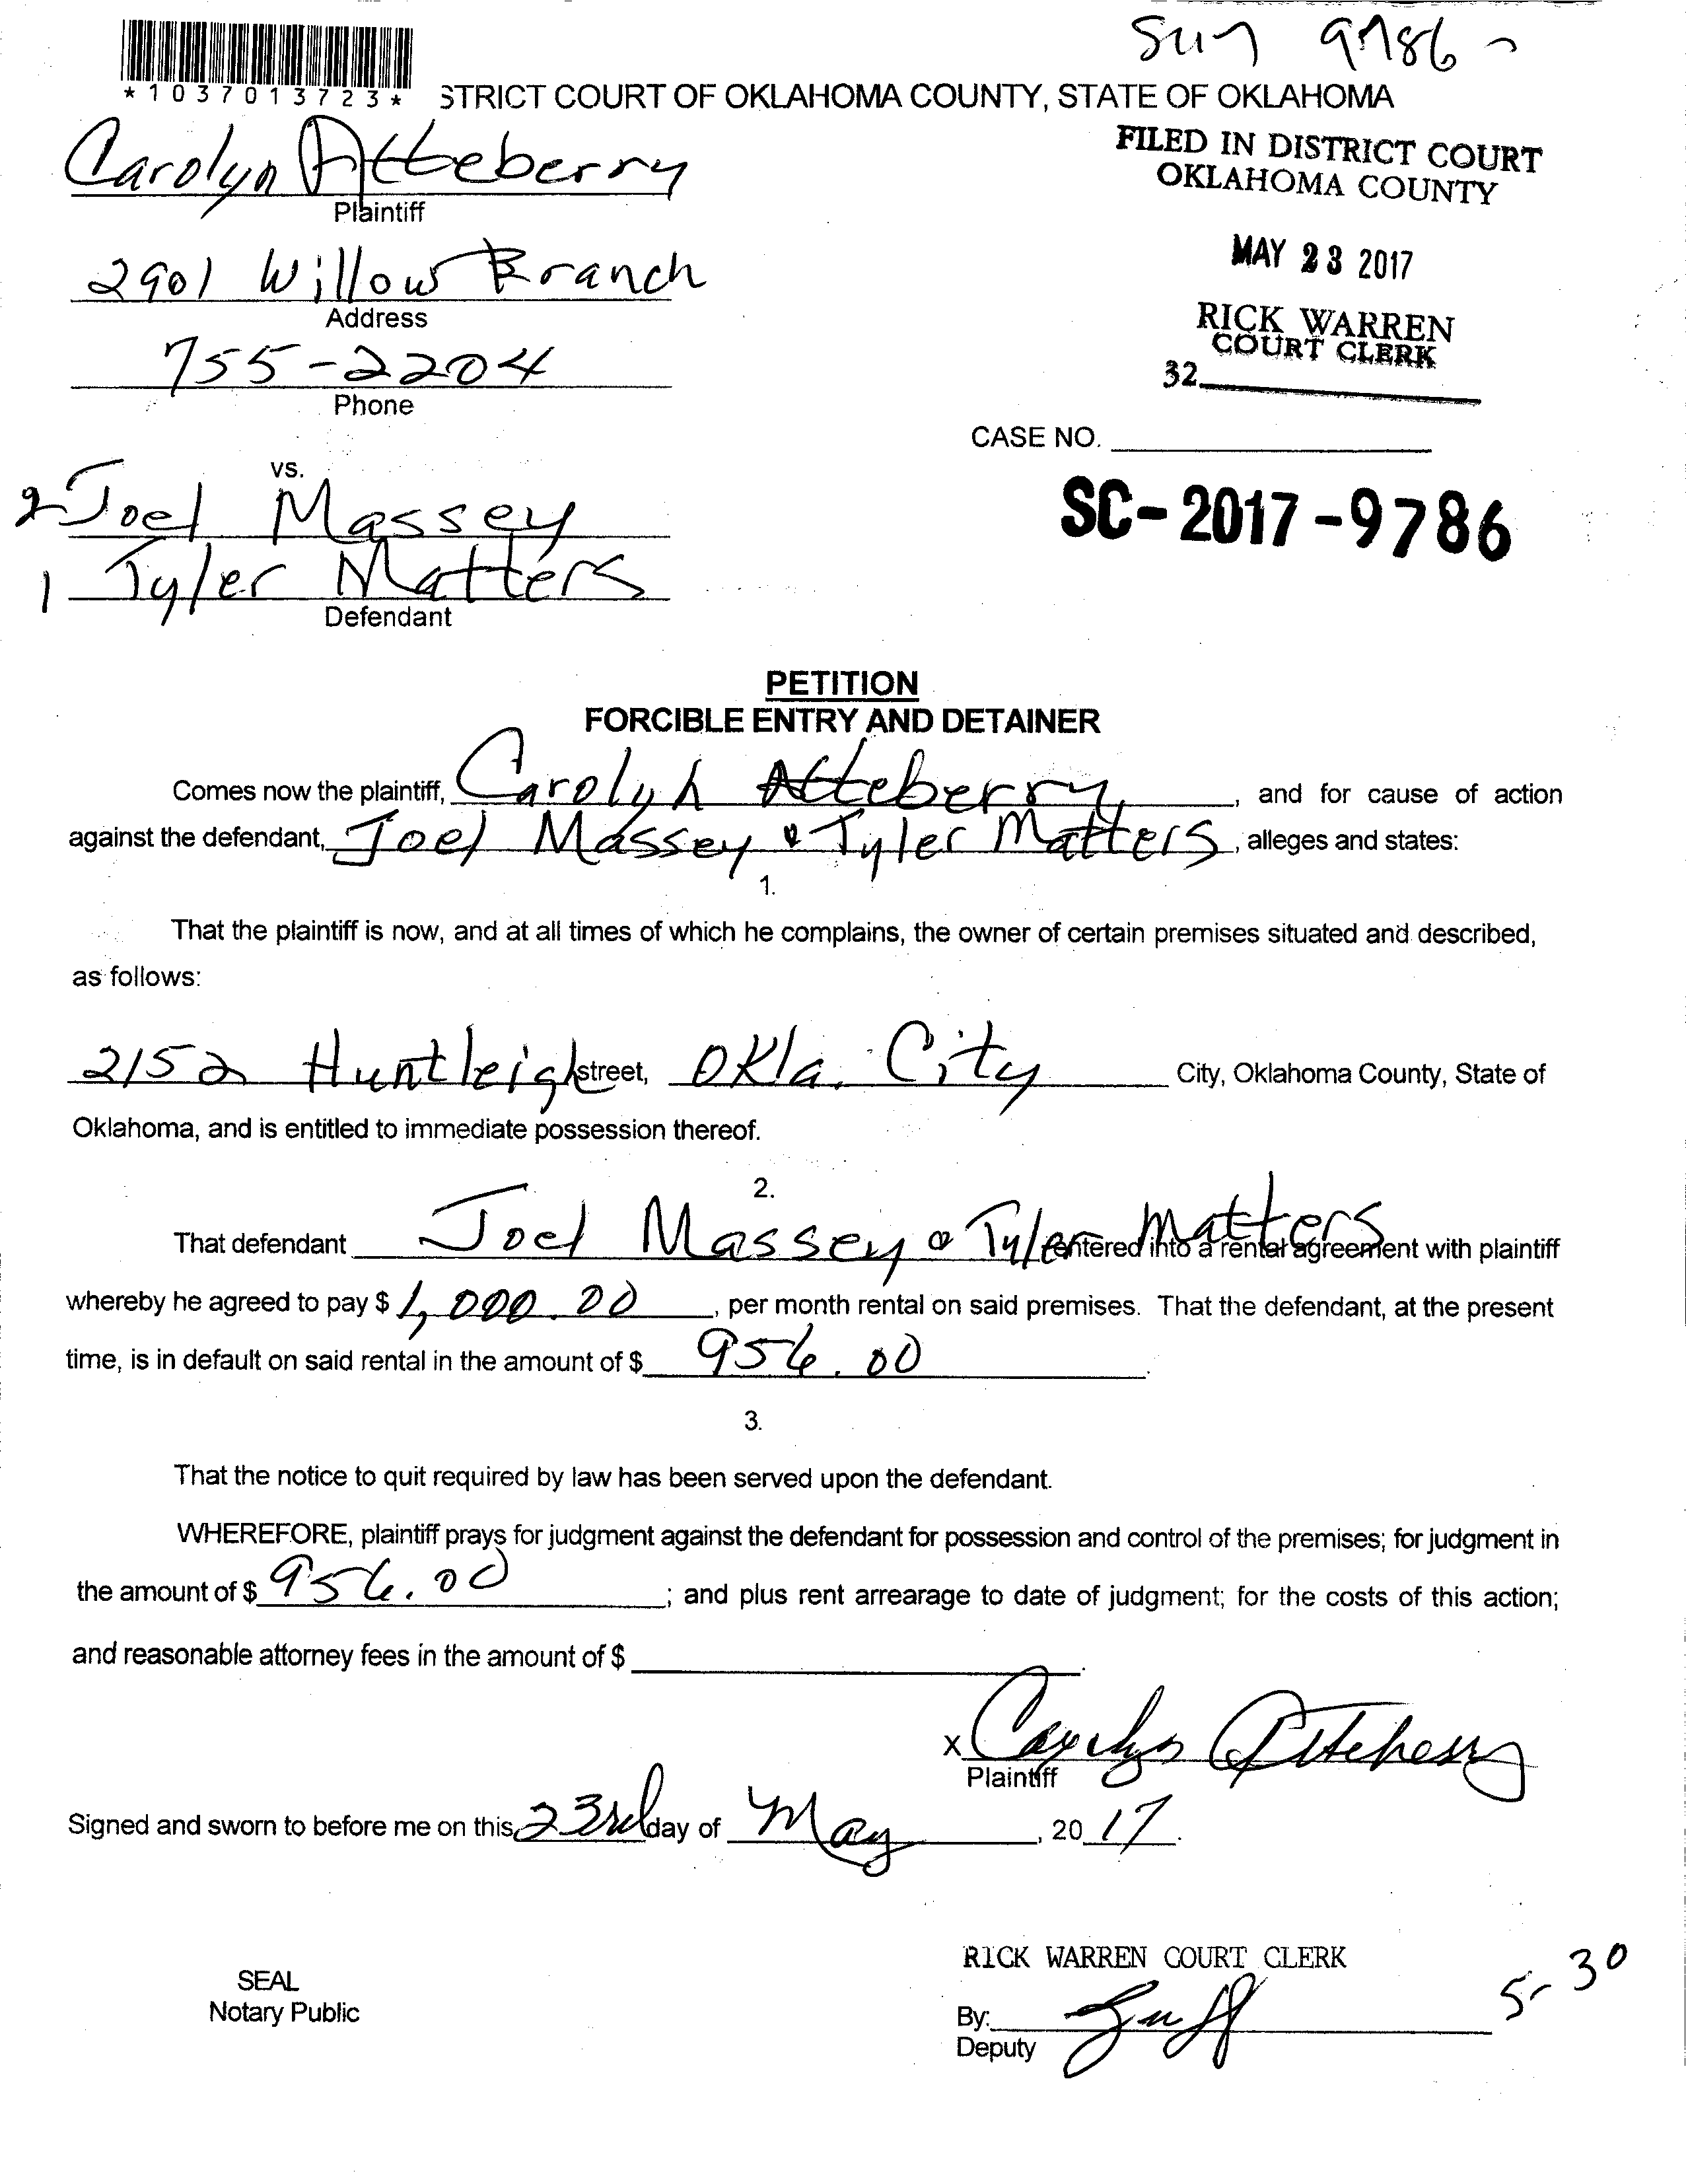 Sun 9786
*1037013723* STRICT COURT OF OKLAHOMA COUNTY, STATE OF OKLAHOMA
Carolyn Atteberry
Plaintiff
FILED IN DISTRICT COURT
OKLAHOMA COUNTY
2901 Willow Branch
Address
MAY 23 2017
755-2204
Phone
RICK WARREN
COURT CLERK
32
CASE NO.
SC-2017-9786
vs.
2 Joel Massey
1 Tyler Matters
Defendant
PETITION
FORCIBLE ENTRY AND DETAINER
Comes now the plaintiff, Carolyn Atteberry, and for cause of action
against the defendant, Joel Massey & Tyler Matters, alleges and states:
1.
That the plaintiff is now, and at all times of which he complains, the owner of certain premises situated and described,
as follows:
2152 Huntleigh street, Okla. City City, Oklahoma County, State of
Oklahoma, and is entitled to immediate possession thereof.
2.
That defendant Joel Massey & Tyler Matters entered into a rental agreement with plaintiff
whereby he agreed to pay $ 1,000.00, per month rental on said premises. That the defendant, at the present
time, is in default on said rental in the amount of $ 956.00.
3.
That the notice to quit required by law has been served upon the defendant.
WHEREFORE, plaintiff prays for judgment against the defendant for possession and control of the premises; for judgment in
the amount of $ 956.00; and plus rent arrearage to date of judgment; for the costs of this action;
and reasonable attorney fees in the amount of $
x Carolyn Atteberry
Plaintiff
Signed and sworn to before me on this 23rd day of May, 20 17.
SEAL
Notary Public
RICK WARREN COURT CLERK
By:
Deputy
5-30